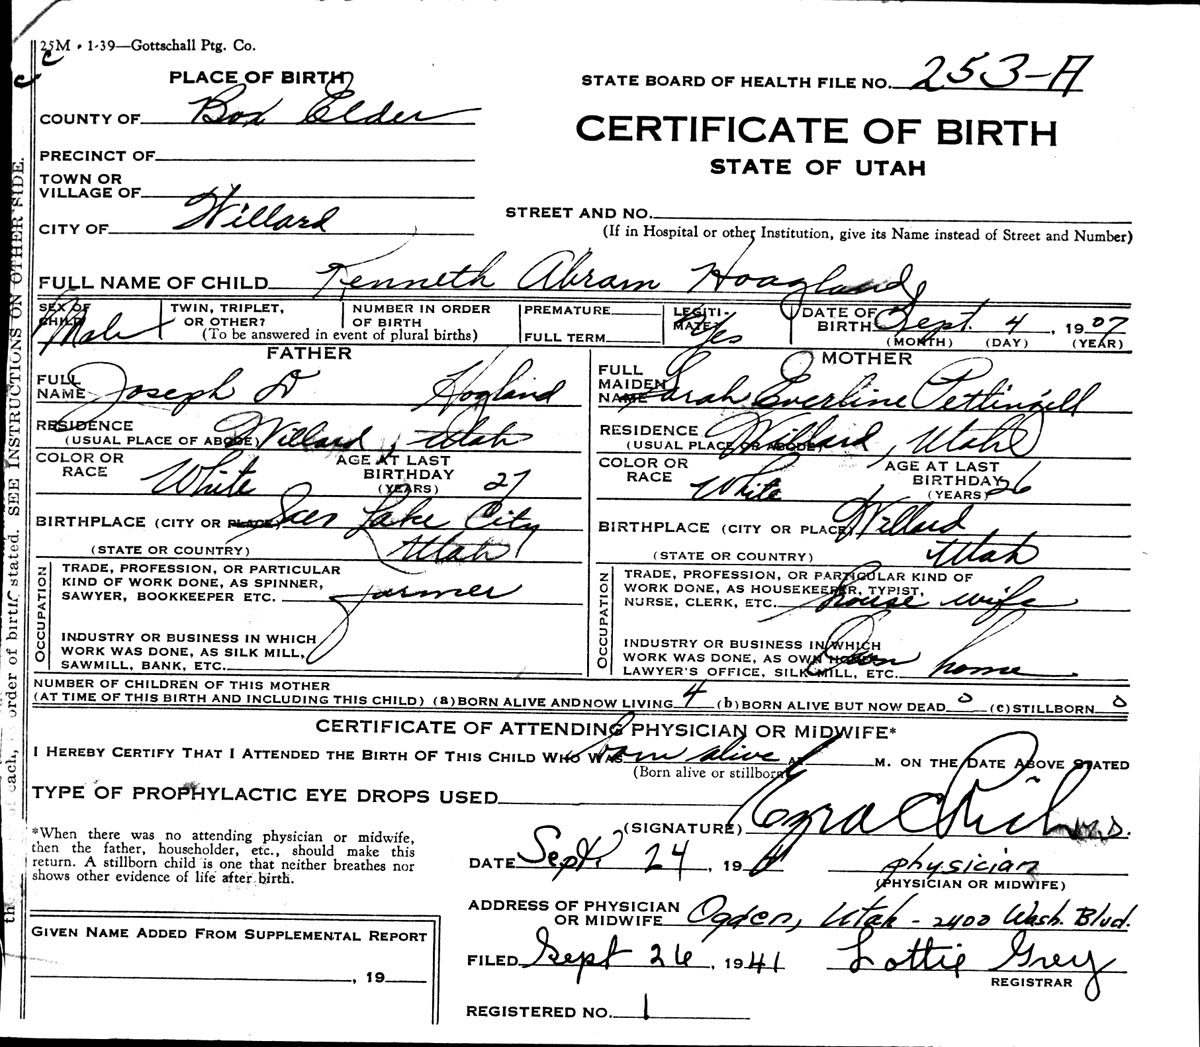 25M · 1-39—Gottschall Ptg. Co.
PLACE OF BIRTH
STATE BOARD OF HEALTH FILE NO. 253-A
COUNTY OF Box Elder
CERTIFICATE OF BIRTH
STATE OF UTAH
PRECINCT OF
TOWN OR
VILLAGE OF
CITY OF Willard
STREET AND NO.
(If in Hospital or other Institution, give its Name instead of Street and Number)
FULL NAME OF CHILD Kenneth Abram Hoagland
SEX OF CHILD Male
TWIN, TRIPLET, OR OTHER?
NUMBER IN ORDER OF BIRTH
(To be answered in event of plural births)
PREMATURE
FULL TERM
LEGITIMATE? Yes
DATE OF BIRTH Sept. 4, 1907
(MONTH) (DAY) (YEAR)
FATHER
FULL NAME Joseph D Hogland
RESIDENCE (USUAL PLACE OF ABODE) Willard, Utah
COLOR OR RACE White AGE AT LAST BIRTHDAY (YEARS) 27
BIRTHPLACE (CITY OR PLACE) Lake City
(STATE OR COUNTRY) Utah
OCCUPATION
TRADE, PROFESSION, OR PARTICULAR
KIND OF WORK DONE, AS SPINNER,
SAWYER, BOOKKEEPER ETC. farmer
INDUSTRY OR BUSINESS IN WHICH
WORK WAS DONE, AS SILK MILL,
SAWMILL, BANK, ETC.
MOTHER
FULL MAIDEN NAME Sarah Everline Pettingill
RESIDENCE (USUAL PLACE OR ABODE) Willard, Utah
COLOR OR RACE White AGE AT LAST BIRTHDAY (YEARS) 26
BIRTHPLACE (CITY OR PLACE) Willard
(STATE OR COUNTRY) Utah
OCCUPATION
TRADE, PROFESSION, OR PARTICULAR KIND OF
WORK DONE, AS HOUSEKEEPER, TYPIST,
NURSE, CLERK, ETC. house wife
INDUSTRY OR BUSINESS IN WHICH
WORK WAS DONE, AS OWN HOME,
LAWYER'S OFFICE, SILK MILL, ETC. Own home
NUMBER OF CHILDREN OF THIS MOTHER
(AT TIME OF THIS BIRTH AND INCLUDING THIS CHILD) (a) BORN ALIVE AND NOW LIVING 4 (b) BORN ALIVE BUT NOW DEAD 0 (c) STILLBORN 0
CERTIFICATE OF ATTENDING PHYSICIAN OR MIDWIFE*
I HEREBY CERTIFY THAT I ATTENDED THE BIRTH OF THIS CHILD WHO WAS born alive AT M. ON THE DATE ABOVE STATED
(Born alive or stillborn)
TYPE OF PROPHYLACTIC EYE DROPS USED
(SIGNATURE) Ezra C Rich M.D.
*When there was no attending physician or midwife,
then the father, householder, etc., should make this
return. A stillborn child is one that neither breathes nor
shows other evidence of life after birth.
DATE Sept. 24, 19 physician
(PHYSICIAN OR MIDWIFE)
ADDRESS OF PHYSICIAN
OR MIDWIFE Ogden, Utah - 2400 Wash. Blvd.
GIVEN NAME ADDED FROM SUPPLEMENTAL REPORT
, 19
FILED Sept 26, 1941 Lottie Grey
REGISTRAR
REGISTERED NO. 1
order of birth stated. SEE INSTRUCTIONS ON OTHER SIDE.